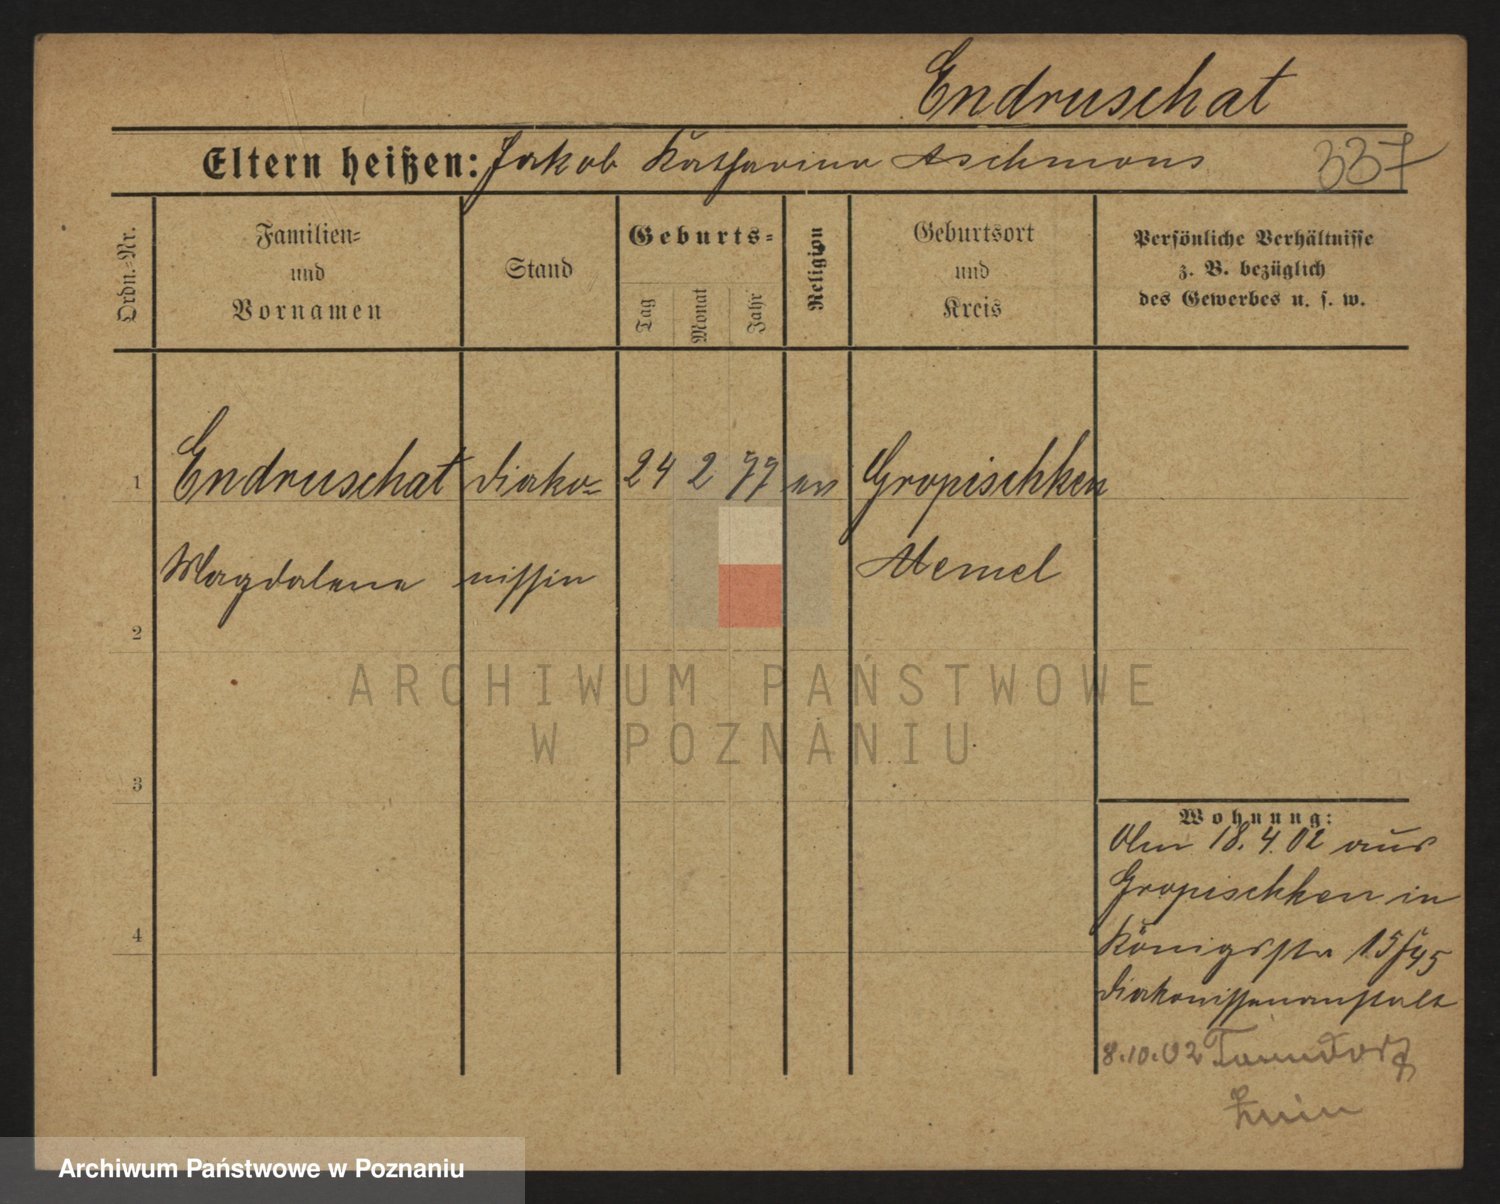 Endruschat
Eltern heißen: Jakob Katharina Aschmons 337
Ordn.-Nr.
Familien-
und
Vornamen
Stand
Geburts-
Tag
Monat
Jahr
Religion
Geburtsort
und
Kreis
Persönliche Verhältnisse
z. B. bezüglich
des Gewerbes u. s. w.
1 Endruschat Diako- 24 2 77 ev Gropischken
Magdalena nissin Memel
2
3
4
Wohnung:
Am 18.4.02 aus
Gropischken in
Königsstr 15/45
Diakonissenanstalt
8.10.02
ARCHIWUM PAŃSTWOWE
W POZNANIU
Archiwum Państwowe w Poznaniu